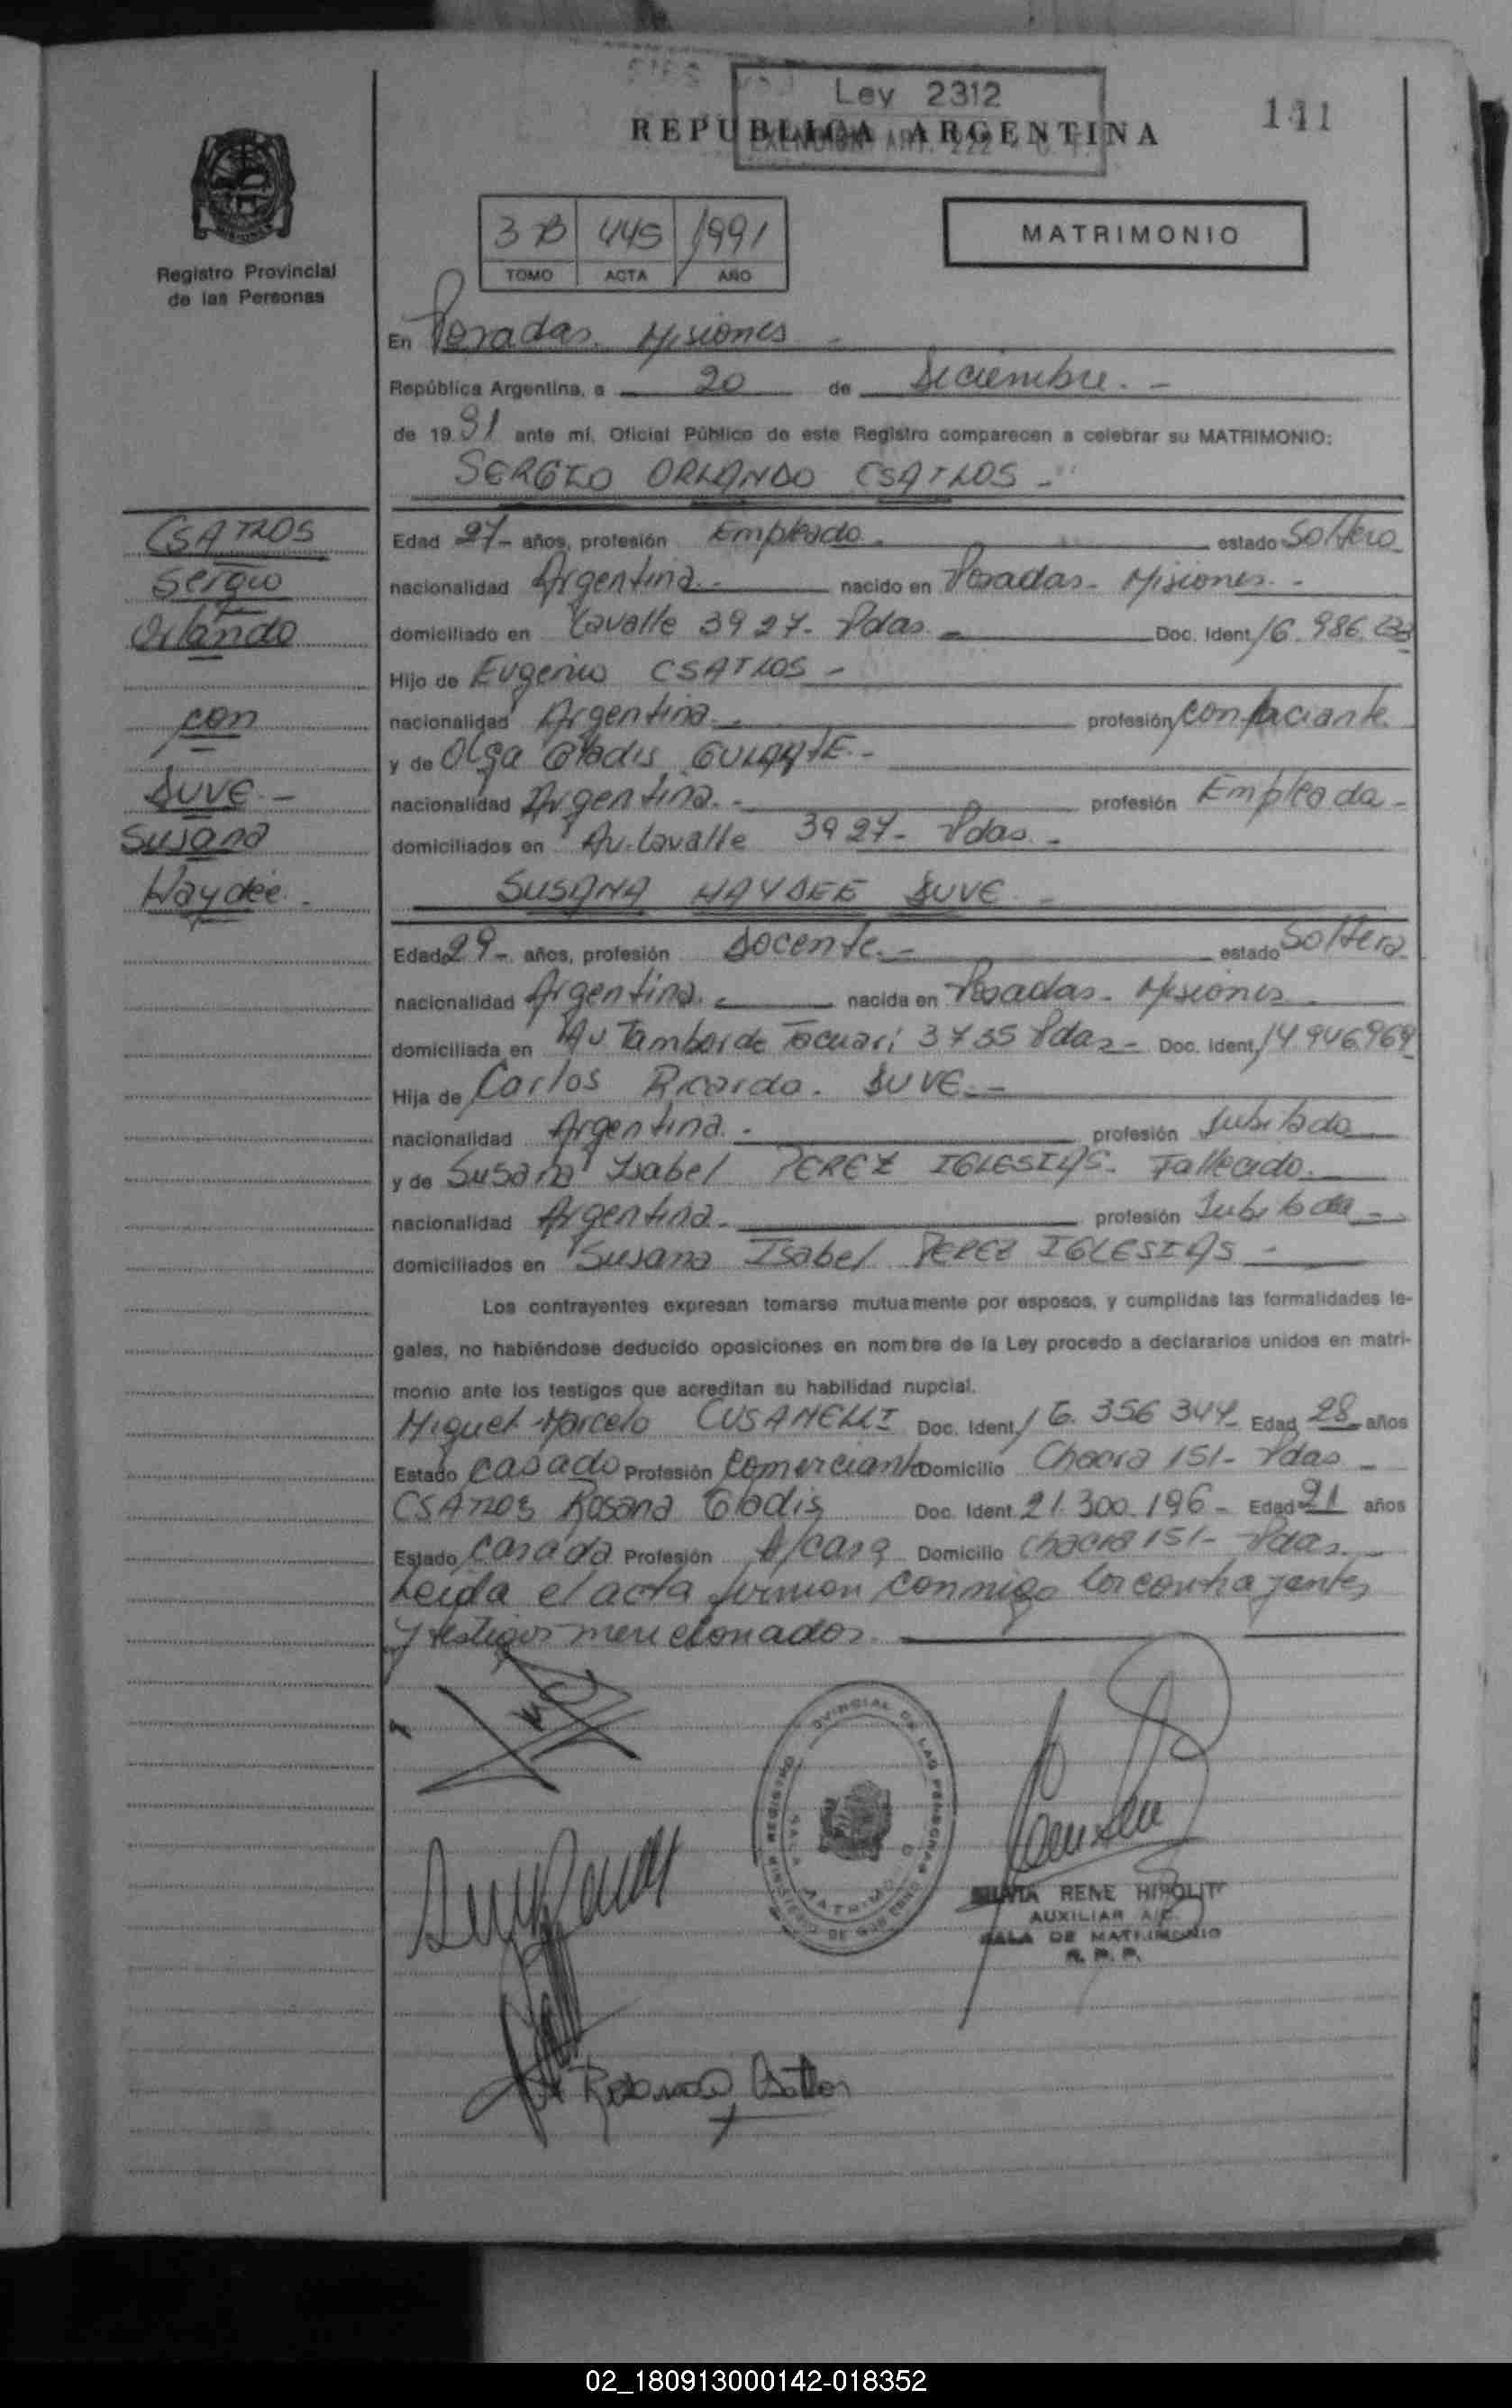 Ley 2312
REPUBLICA ARGENTINA
141
EXENCION ART. 222
3 B 445 1991
TOMO ACTA AÑO
MATRIMONIO
Registro Provincial
de las Personas
En Posadas. Misiones
República Argentina, a 20 de Diciembre. -
de 1991 ante mí, Oficial Público de este Registro comparecen a celebrar su MATRIMONIO:
SERGIO ORLANDO CSATLOS -
CSATLOS
Sergio
Orlando
con
DUVE. -
Susana
Haydée.
Edad 27- años, profesión Empleado. estado Soltero
nacionalidad Argentina. nacido en Posadas - Misiones. -
domiciliado en Lavalle 3927- Pdas. - Doc. Ident. 16.986.233
Hijo de Eugenio CSATLOS -
nacionalidad Argentina. - profesión
y de Olga Gladis -
nacionalidad Argentina. - profesión Empleada -
domiciliados en Av. Lavalle 3927- Pdas. -
SUSANA HAYDEE DUVE -
Edad 29- años, profesión Docente. - estado Soltera
nacionalidad Argentina. nacida en Posadas - Misiones
domiciliada en Av Tambor de Tacuari 3735 Pdas - Doc. Ident. 14.946.969
Hija de Carlos Ricardo. DUVE. -
nacionalidad Argentina. - profesión Jubilado
y de Susana Isabel PEREZ IGLESIAS - Fallecido.
nacionalidad Argentina. profesión Jubilada -
domiciliados en Susana Isabel PEREZ IGLESIAS -
Los contrayentes expresan tomarse mutuamente por esposos, y cumplidas las formalidades le-
gales, no habiéndose deducido oposiciones en nombre de la Ley procedo a declararlos unidos en matri-
monio ante los testigos que acreditan su habilidad nupcial.
Miguel Marcelo CUSANELLI Doc. Ident. 16.356.344 Edad 28 años
Estado casado Profesión Comerciante Domicilio Chacra 151- Pdas -
CSATLOS Rosana Gladis Doc. Ident. 21.300.196 - Edad 21 años
Estado Casada Profesión A/casa Domicilio Chacra 151- Pdas. -
Leida el acta firman conmigo los contrayentes
y testigos mencionados.
REGISTRO PROVINCIAL DE LAS PERSONAS
MINISTERIO DE GOBIERNO
SALA MATRIMONIO
SILVIA RENE HIPOLIT
AUXILIAR A/C
SALA DE MATRIMONIO
R. P. P.
Rosana Csatlos
02_180913000142-018352